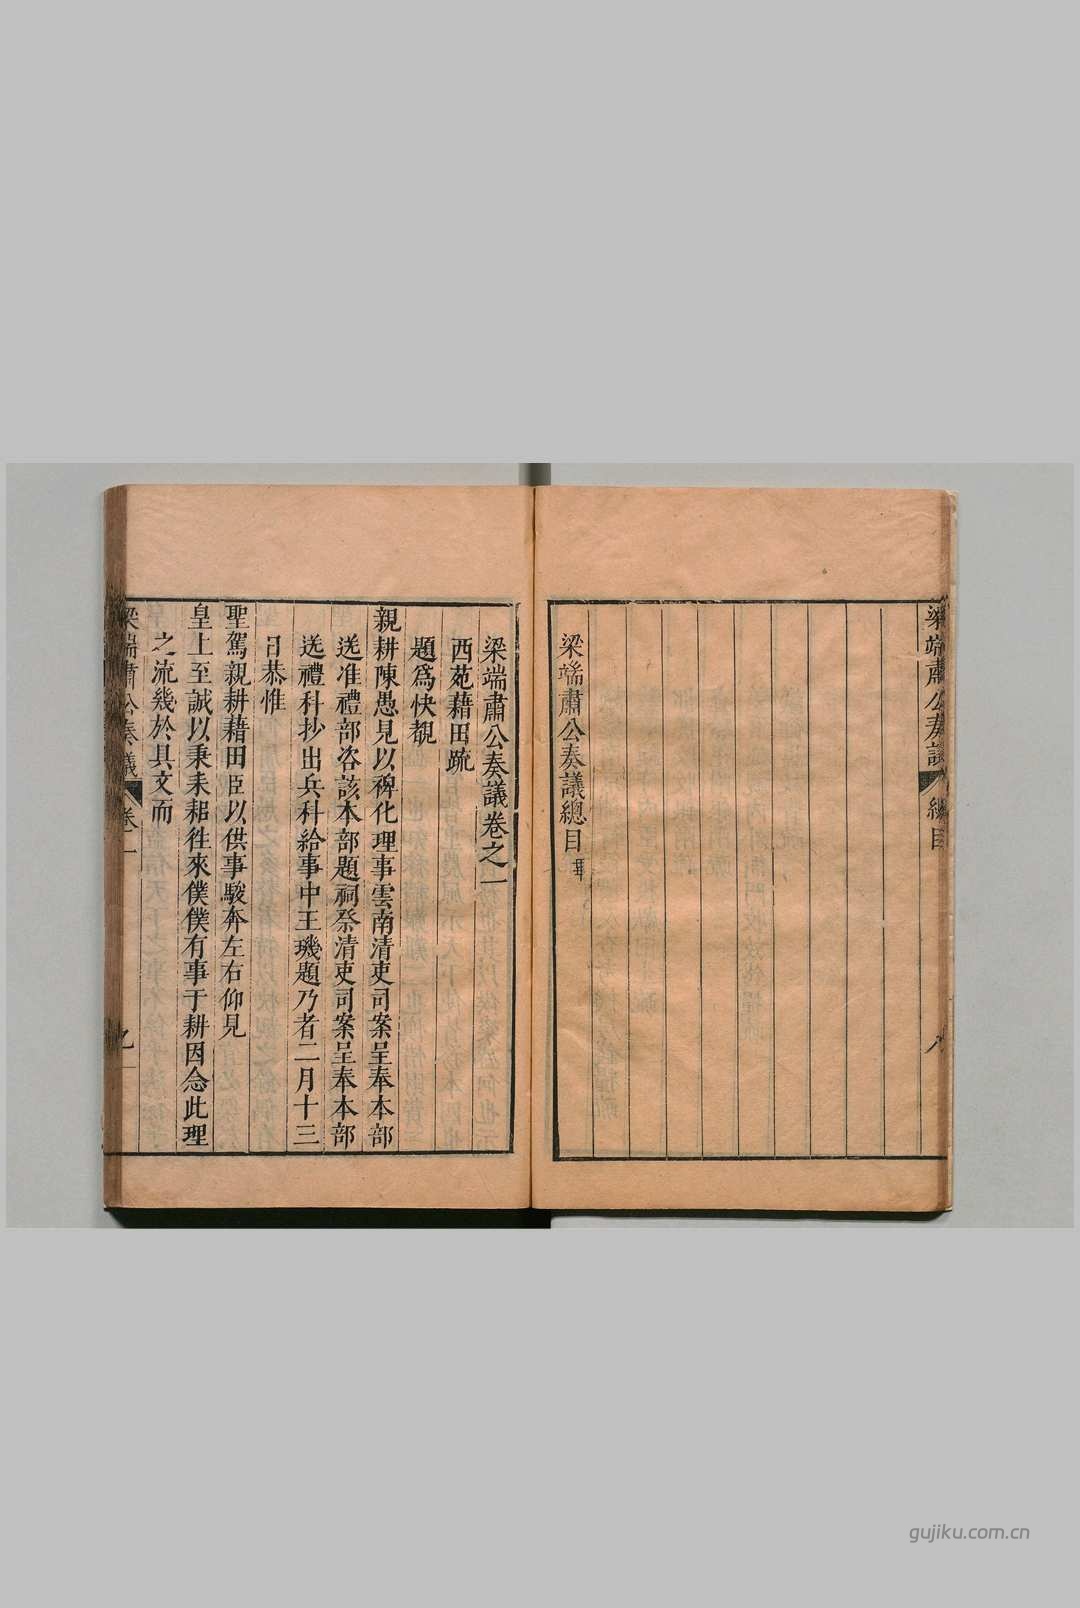 梁端肅公奏議
總目
梁端肅公奏議總目 畢
梁端肅公奏議卷之一
西苑藉田疏
題爲快覩
親耕陳愚見以裨化理事雲南清吏司案呈奉本部
送准禮部咨該本部題祠祭清吏司案呈奉本部
送禮科抄出兵科給事中王璣題乃者二月十三
日恭惟
聖駕親耕藉田臣以供事駿奔左右仰見
皇上至誠以秉耒耜徃來僕僕有事于耕因念此理
之流幾於具文而
梁端肅公奏議
卷一
gujiku.com.cn